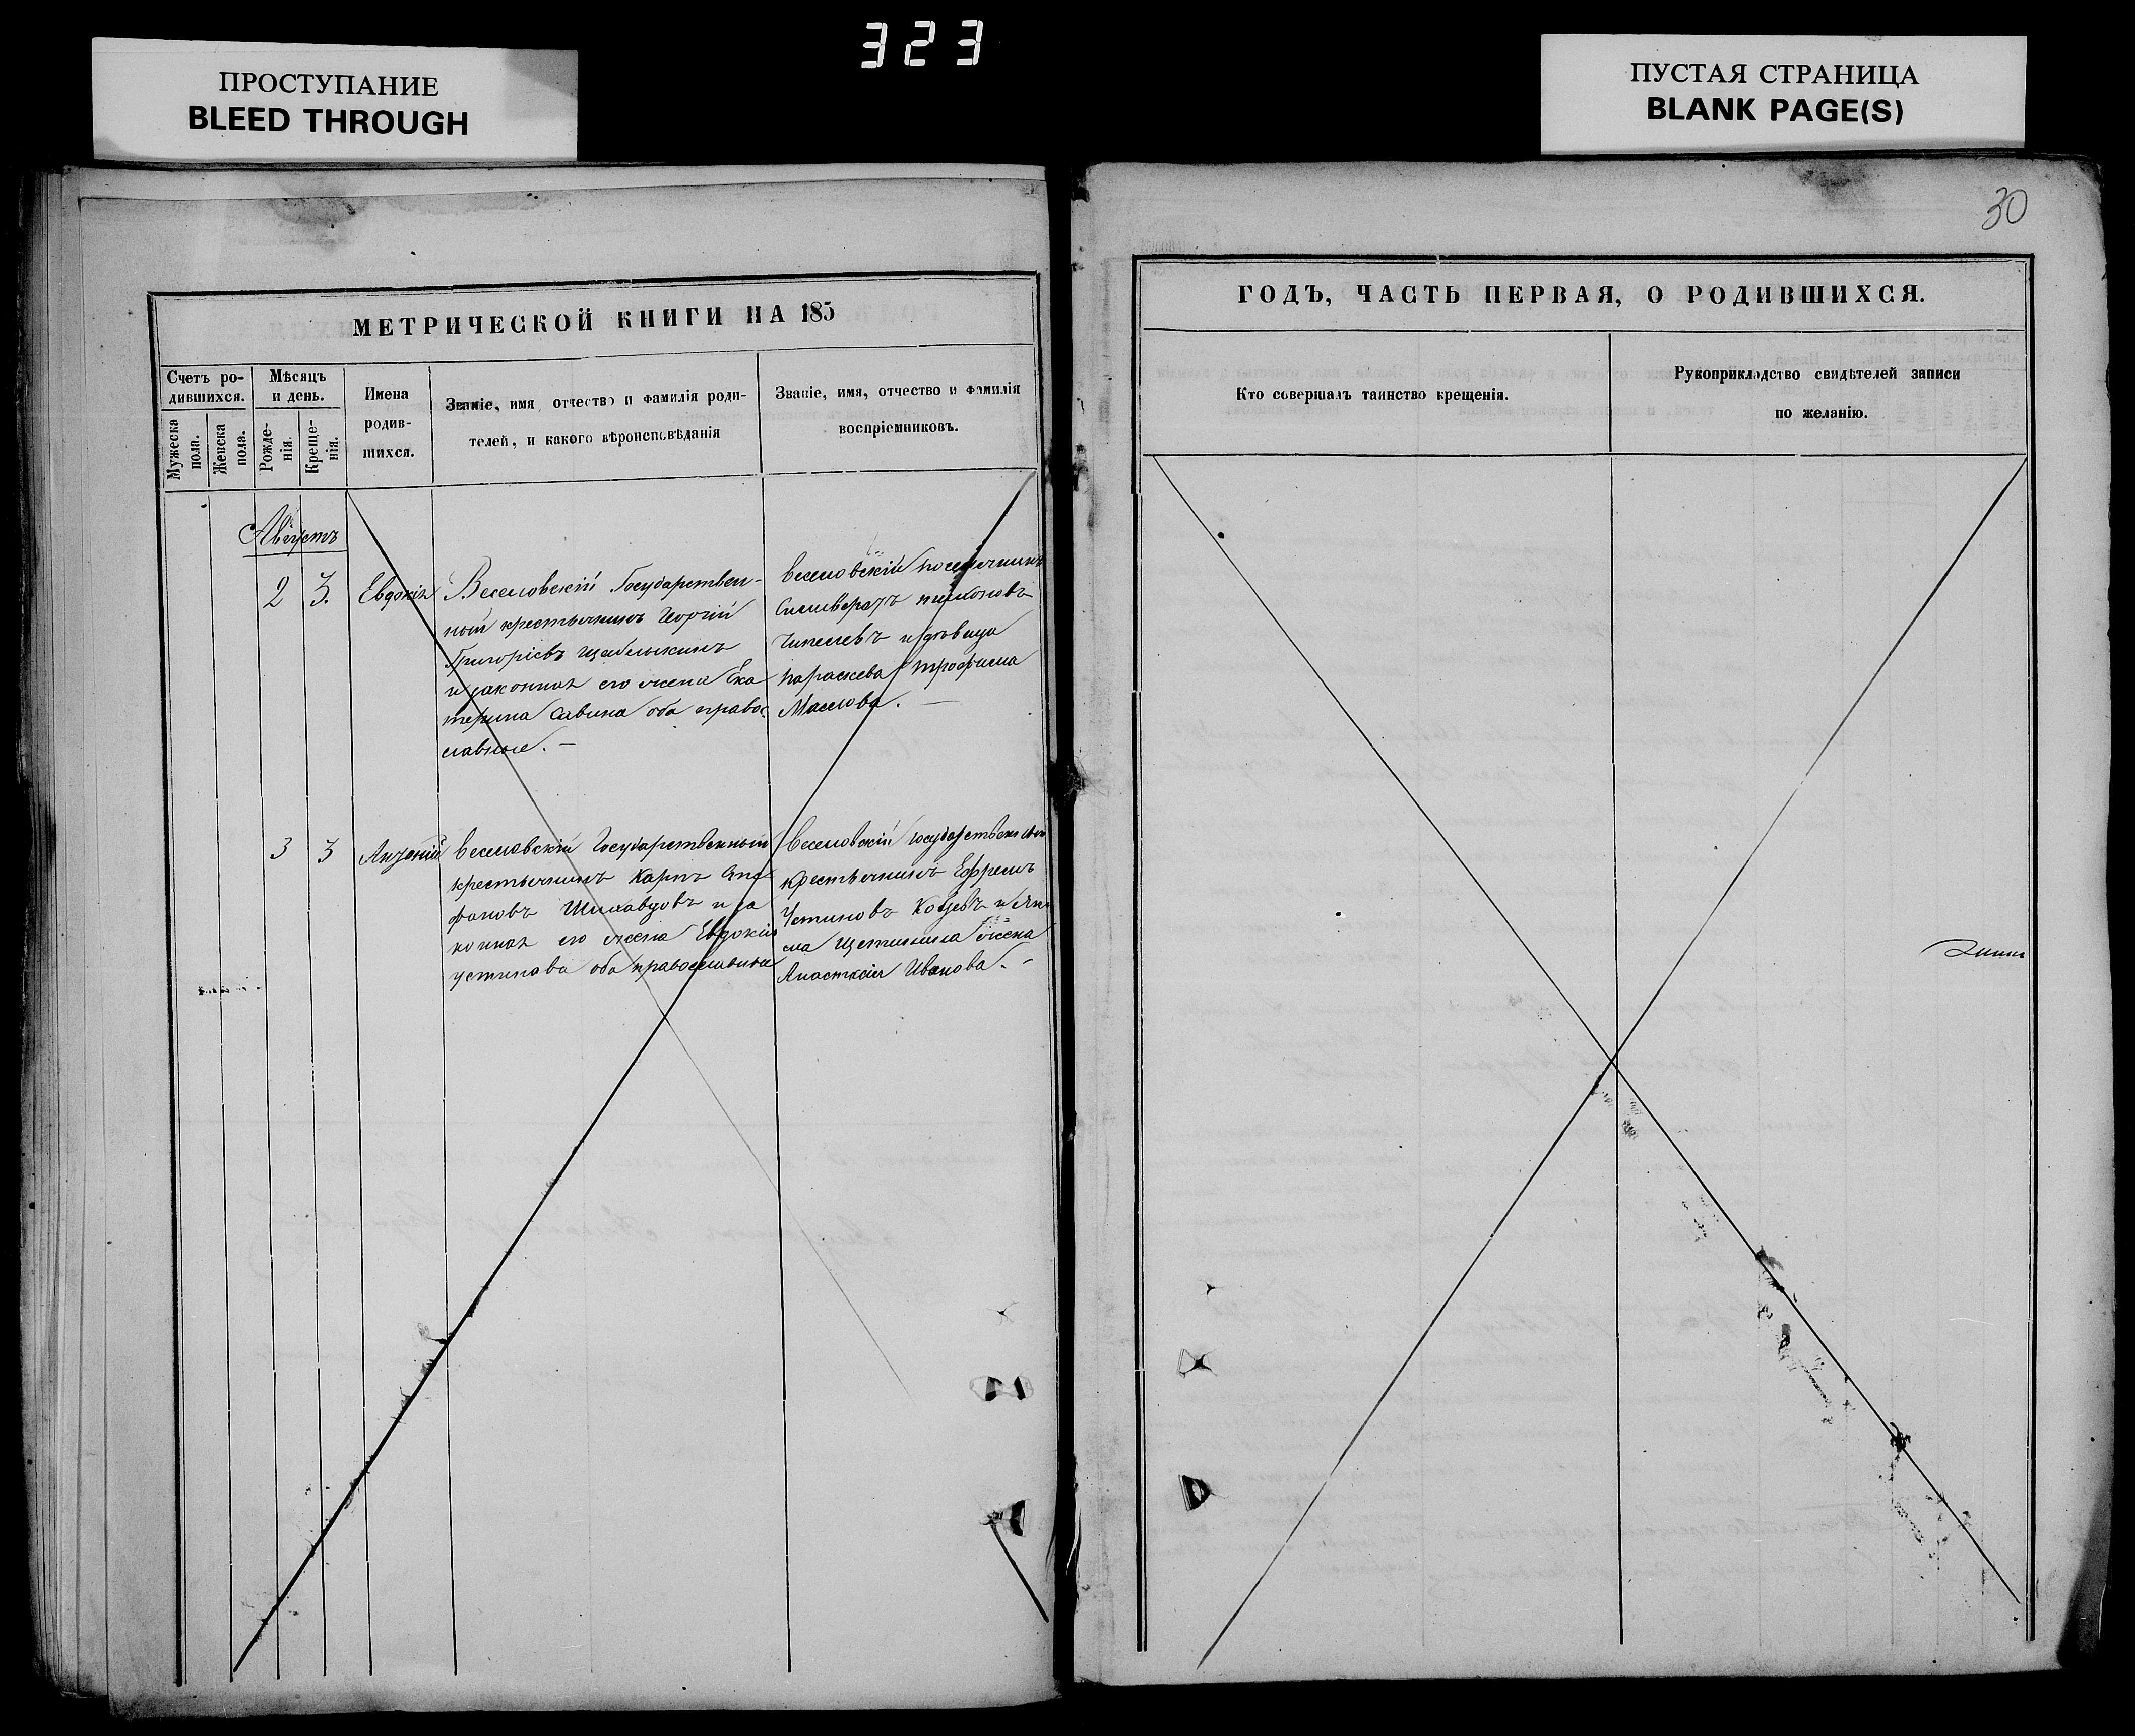 323
ПРОСТУПАНИЕ
BLEED THROUGH
ПУСТАЯ СТРАНИЦА
BLANK PAGE(S)
30
МЕТРИЧЕСКОЙ КНИГИ НА 185
Счетъ ро-
дившихся.
Мужеска
пола.
Женска
пола.
Мѣсяцъ
и день.
Рожде-
нія.
Креще-
нія.
Имена
родив-
шихся.
Званіе, имя, отчество и фамилія роди-
телей, и какого вѣроисповѣданія
Званіе, имя, отчество и фамилія
воспріемниковъ.
Августъ
2 3. Евдокія
Веселовскій Государствен-
ный крестьянинъ Георгій
Григоріевъ
и законная его жена Ека
терина Савина оба право
славные. —
Веселовскій
и дѣвица
Параскева Трофима
Маслова. —
3 3 Антоній
Веселовскій Государственный
крестьянинъ Карпъ Епи
фановъ и за
конная его жена Евдокія
Устинова оба православные
Веселовскій Государственный
крестьянинъ Ефремъ
Устиновъ
Щетинина жена
Иванова. —
ГОДЪ, ЧАСТЬ ПЕРВАЯ, О РОДИВШИХСЯ.
Кто совершалъ таинство крещенія.
Рукоприкладство свидѣтелей записи
по желанію.